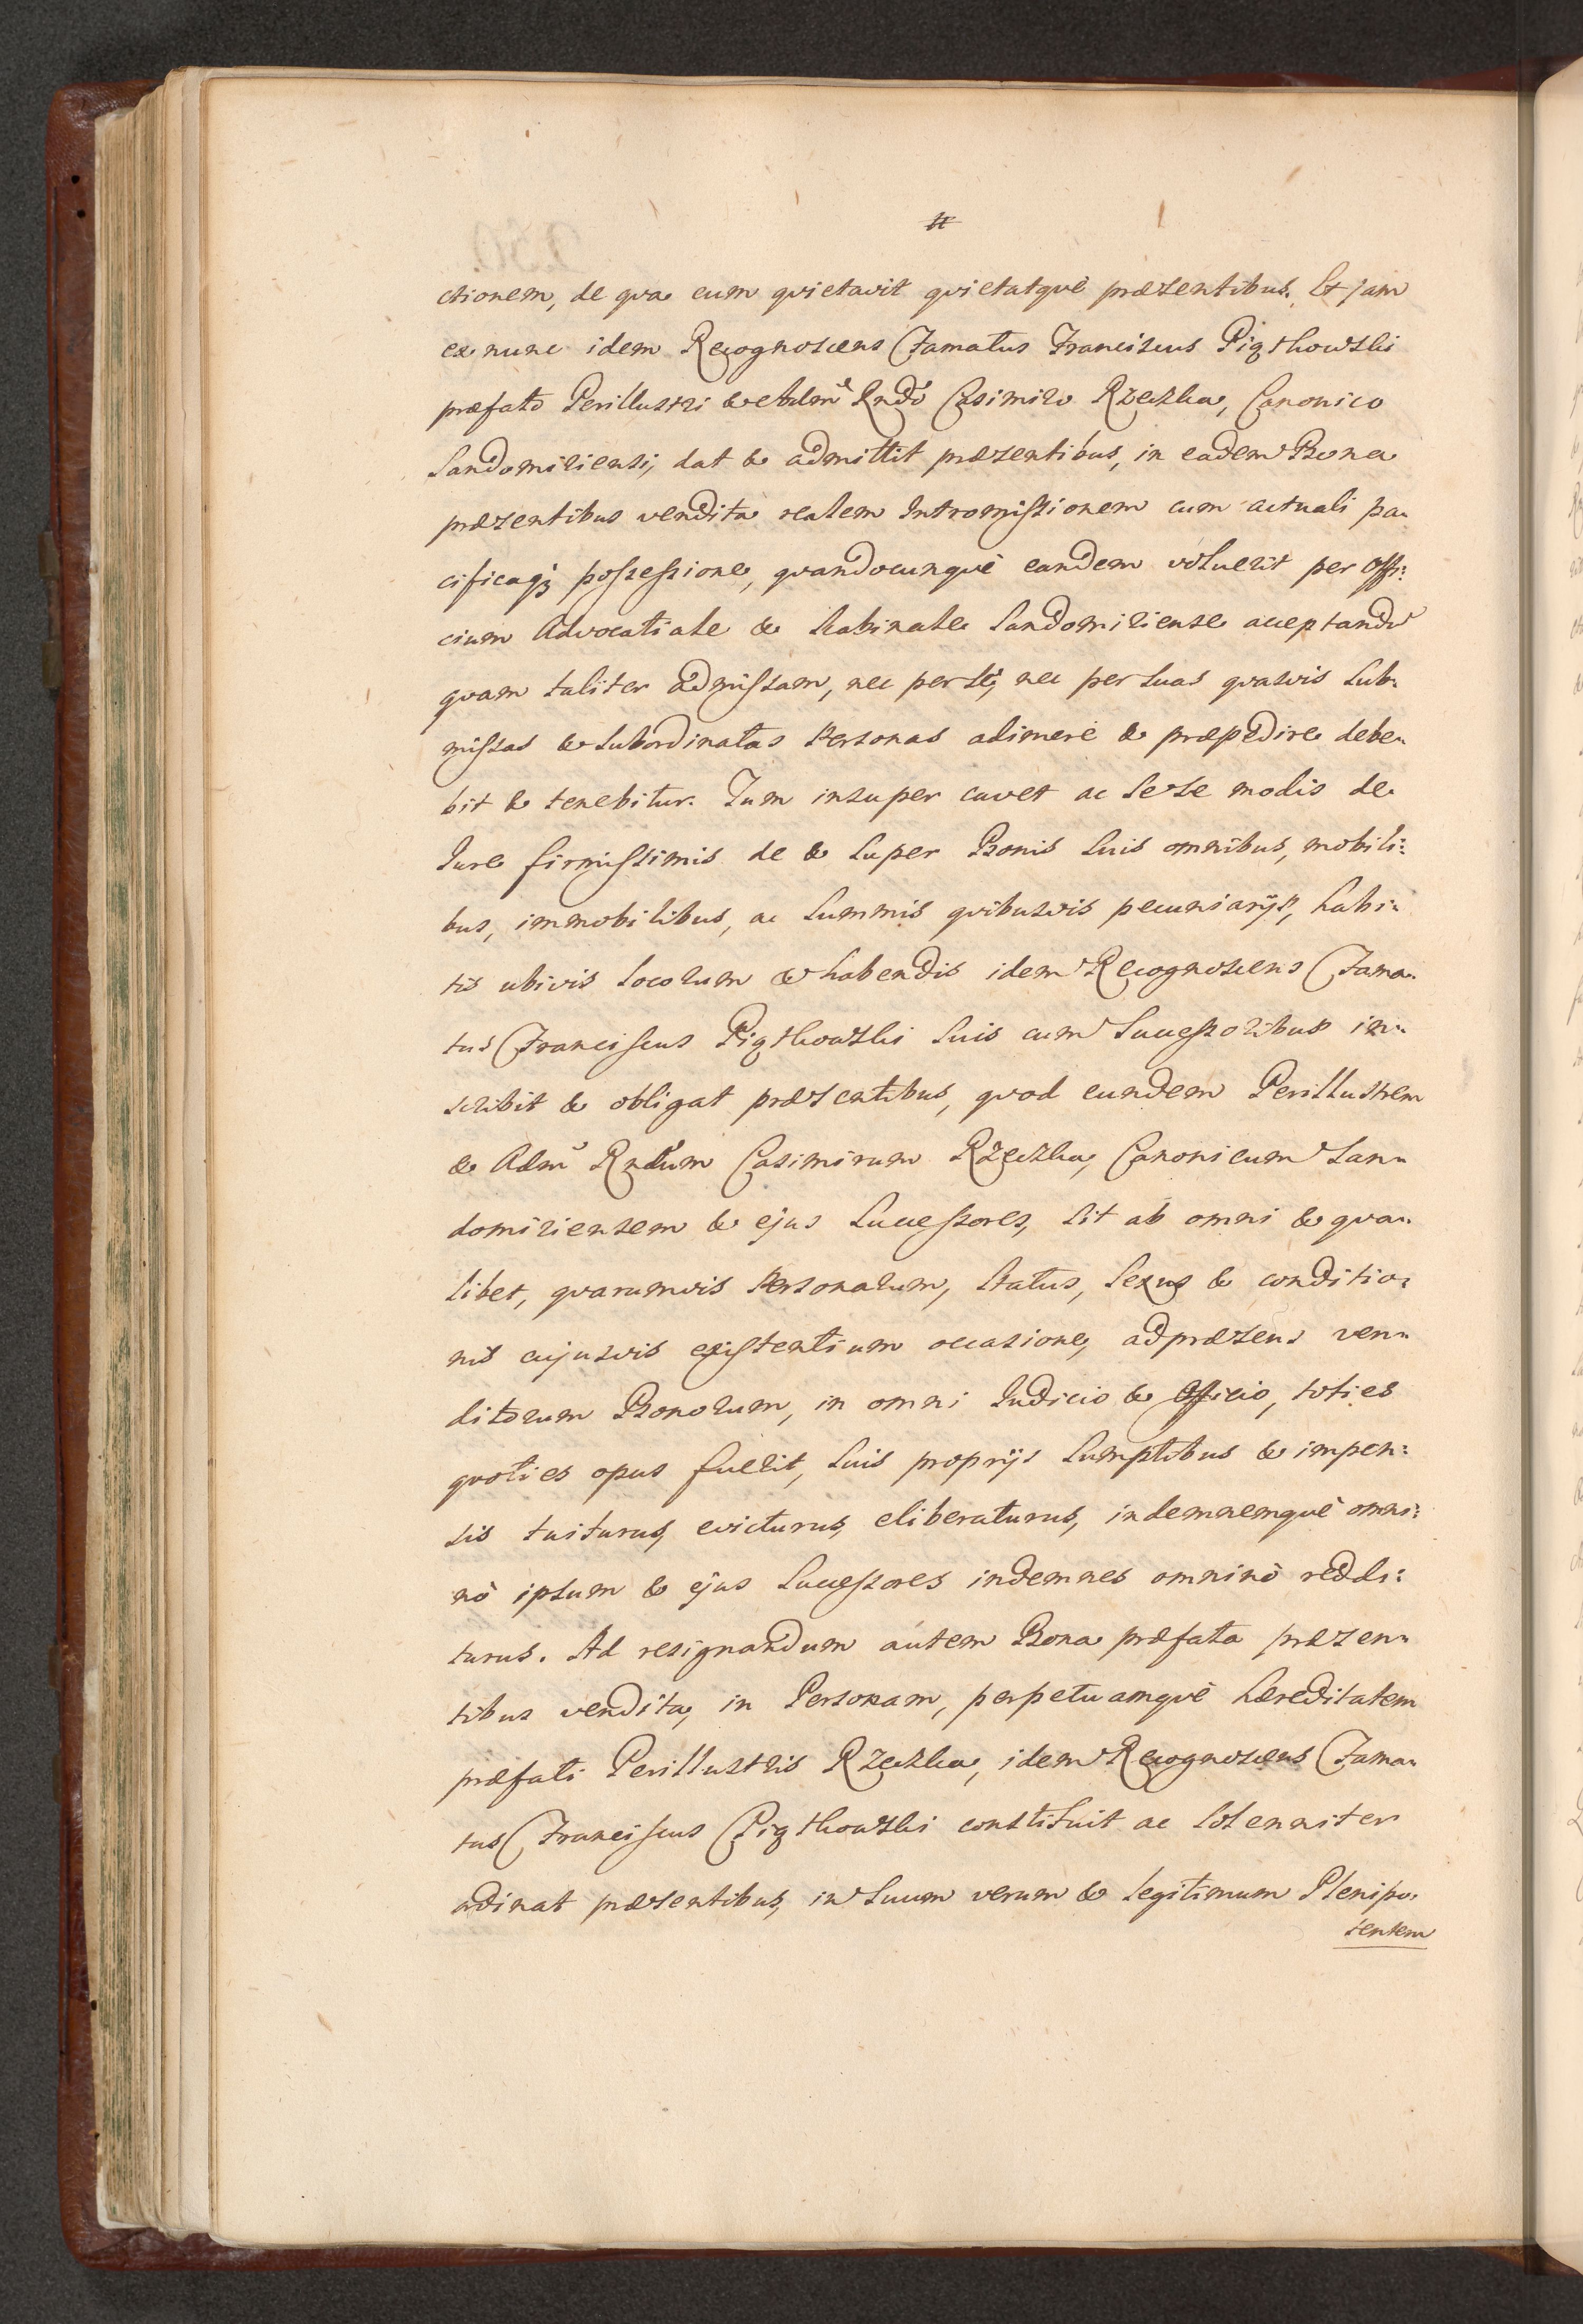 ctionem, de qva eum qvietavit qvietatqvè præsentibus. Et jam
ex nunc idem Recognoscens Famatus Franciscus Piątkowski
præfato Perillustri & Admº Rndº Casimiro Rzeczka, Canonico
Sandomiriensi, dat & admittit præsentibus, in eadem Bona
præsentibus vendita realem Intromissionem cum actuali pa-
cificaq; possessione, qvandocunqvè eandem voluerit per Offi:
cium Advocatiale & Scabinale Sandomiriense acceptando
qvam taliter admissam, nec per se, nec per suas qvasvis sub-
missas & subordinatas Personas adimere & præpedire debe-
bit & tenebitur. Tum insuper cavet ac sese modis de
Jure firmissimis de & super Bonis suis omnibus, mobili:
bus, immobilibus, ac summis qvibusvis pecuniarijs, habi-
tis ubivis locorum & habendis idem Recognoscens Fama-
tus Franciscus Piątkowski suis cum Successoribus in-
scribit & obligat præsentibus, qvod eundem Perillustrem
& Admº Rndum Casimirum Rzeczka, Canonicum San-
domiriensem & ejus Successores, sit ab omni & qva-
libet, qvarumvis Personarum, status, sexus & conditio-
nis cujusvis existentium occasione, ad præsens ven-
ditorum Bonorum, in omni Judicio & Officio, toties
qvoties opus fuerit, suis proprijs sumptibus & impen:
sis tuiturus, evicturus, eliberaturus, indemnemqvè omni:
nò ipsum & ejus Successores indemnes omninò reddi:
turus. Ad resignandum autem Bona præfata præsen-
tibus vendita, in Personam, perpetuamqvè hæreditatem
præfati Perillustris Rzeczka, idem Recognoscens Fama-
tus Franciscus Piątkowski constituit ac solenniter
ordinat præsentibus, in suum verum & legitimum Plenipo-
tentem